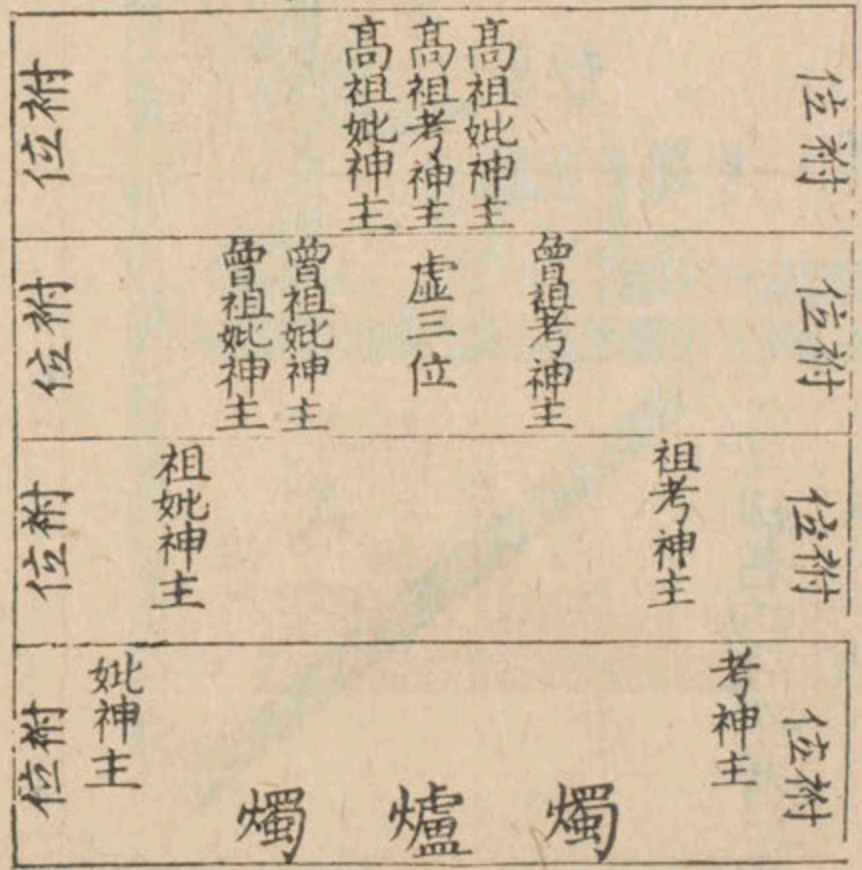 祔位
髙祖妣神主
髙祖考神主
髙祖妣神主
祔位
祔位
曾祖考神主
虛三位
曾祖妣神主
曾祖妣神主
祔位
祔位
祖考神主
祖妣神主
祔位
祔位
考神主
燭
爐
燭
妣神主
祔位